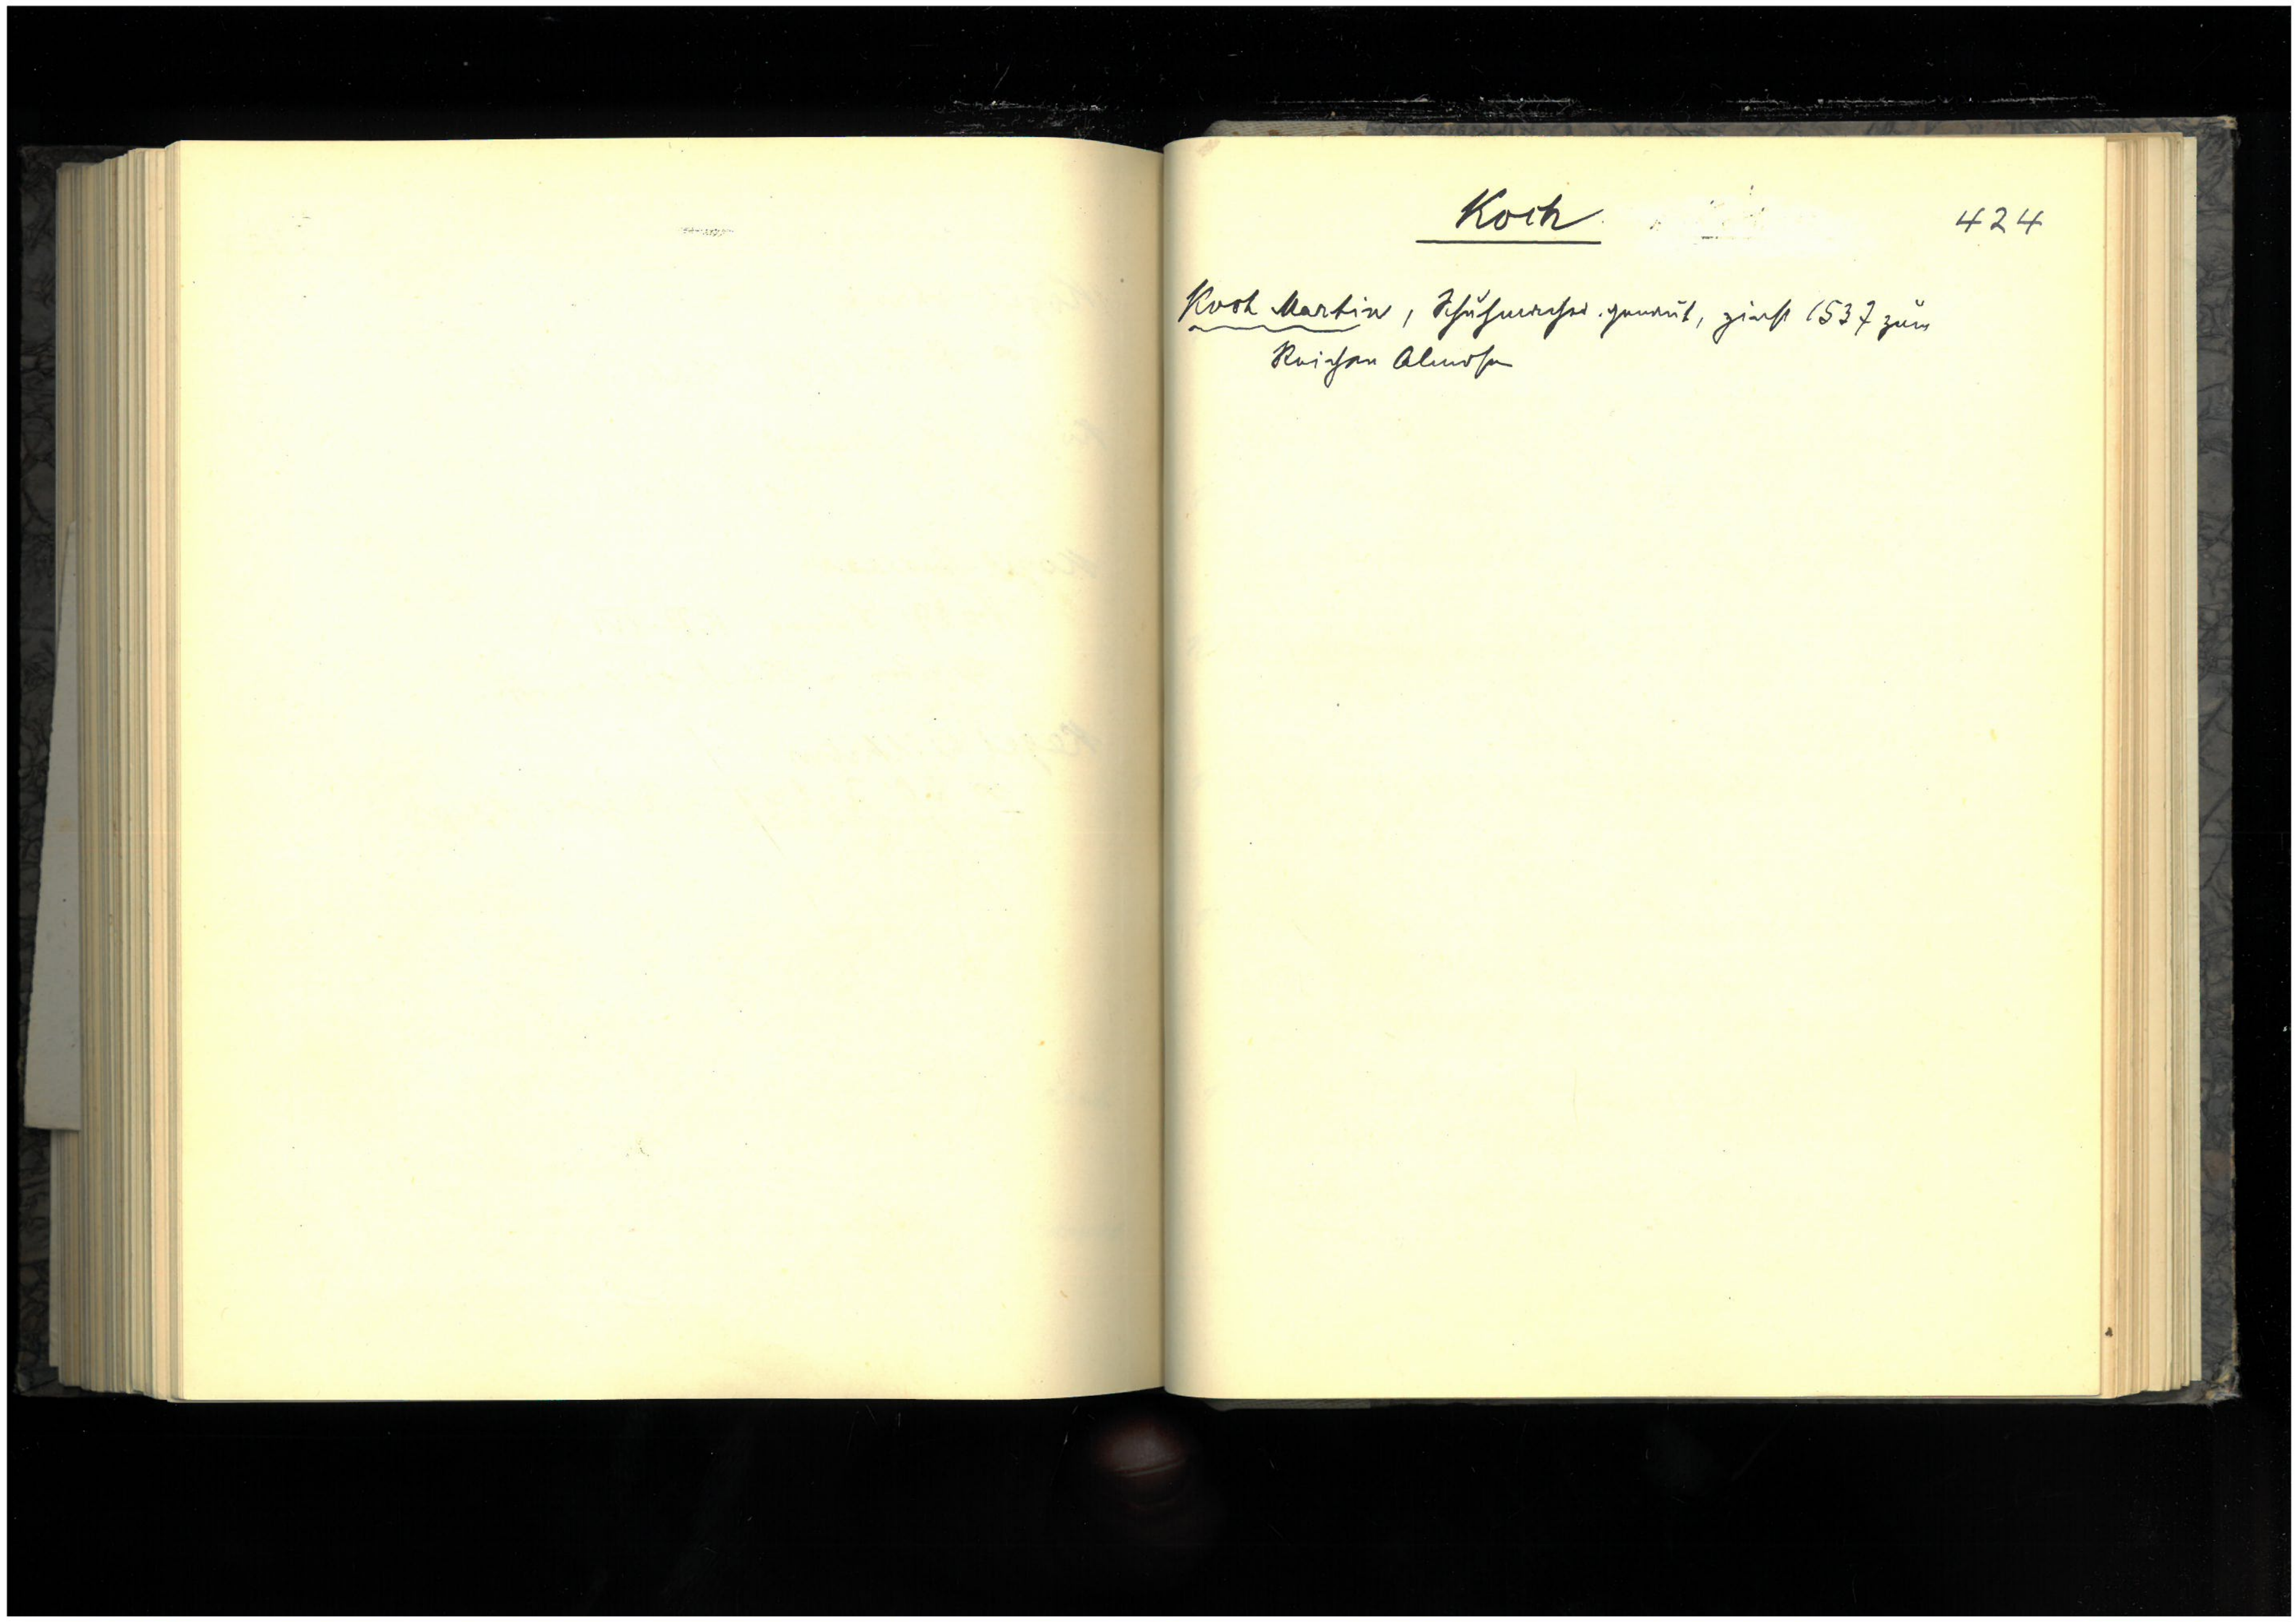 Koch
424
Koch Martin, Schuhmacher genannt, zinst 1537 zum
Reichen Almosen